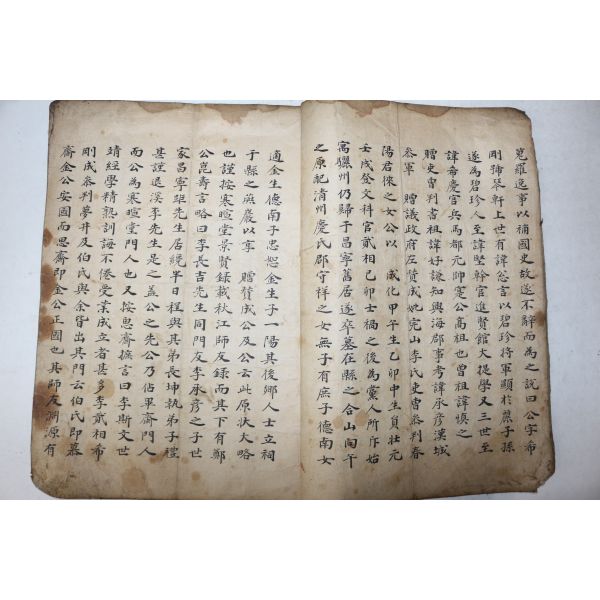 蒐羅逸事以補國史故遂不辭而爲之說曰公字希
剛號琴軒上世有諱忩言以碧珍將軍顯於麗子孫
遂爲碧珍人至諱堅幹官進賢館大提學又三世至
諱希慶官兵馬都元帥寔公高祖也曾祖諱愼之
贈吏曹判書祖諱好謙知興海郡事考諱承彦漢城
叅軍 贈議政府左贊成妣完山李氏吏曹叅判春
陽君徠之女公以 成化甲午生乙卯中生員壯元
壬戌登文科官貳相己卯士禍之後爲黨人所斥始
寓驪州仍歸于昌寧舊居遂卒墓在縣之合山向午
之原配淸州慶氏郡守祥之女無子有庶子德南女
適金生德南子忠恕金生子一陽其後鄕人士立祠
于縣之㢘巖以享 贈贊成公及公云此原狀大略
也謹按寒暄堂景賢錄載秋江師友錄而其下有鄭
公崑壽言略曰李長吉先生同門友李承彦之子世
家昌寧距先生居纔半日程與其弟長坤執弟子禮
甚謹退溪李先生是之盖公之先公乃佔畢齋門人
而公爲寒暄堂門人也又按思齋摭言曰李斯文世
靖經學精熟訓誨不倦受業成立者甚多李貳相希
剛成叅判夢井及伯氏與余皆出其門云伯氏卽慕
齋金公安國而思齋卽金公正國也其師友淵源有